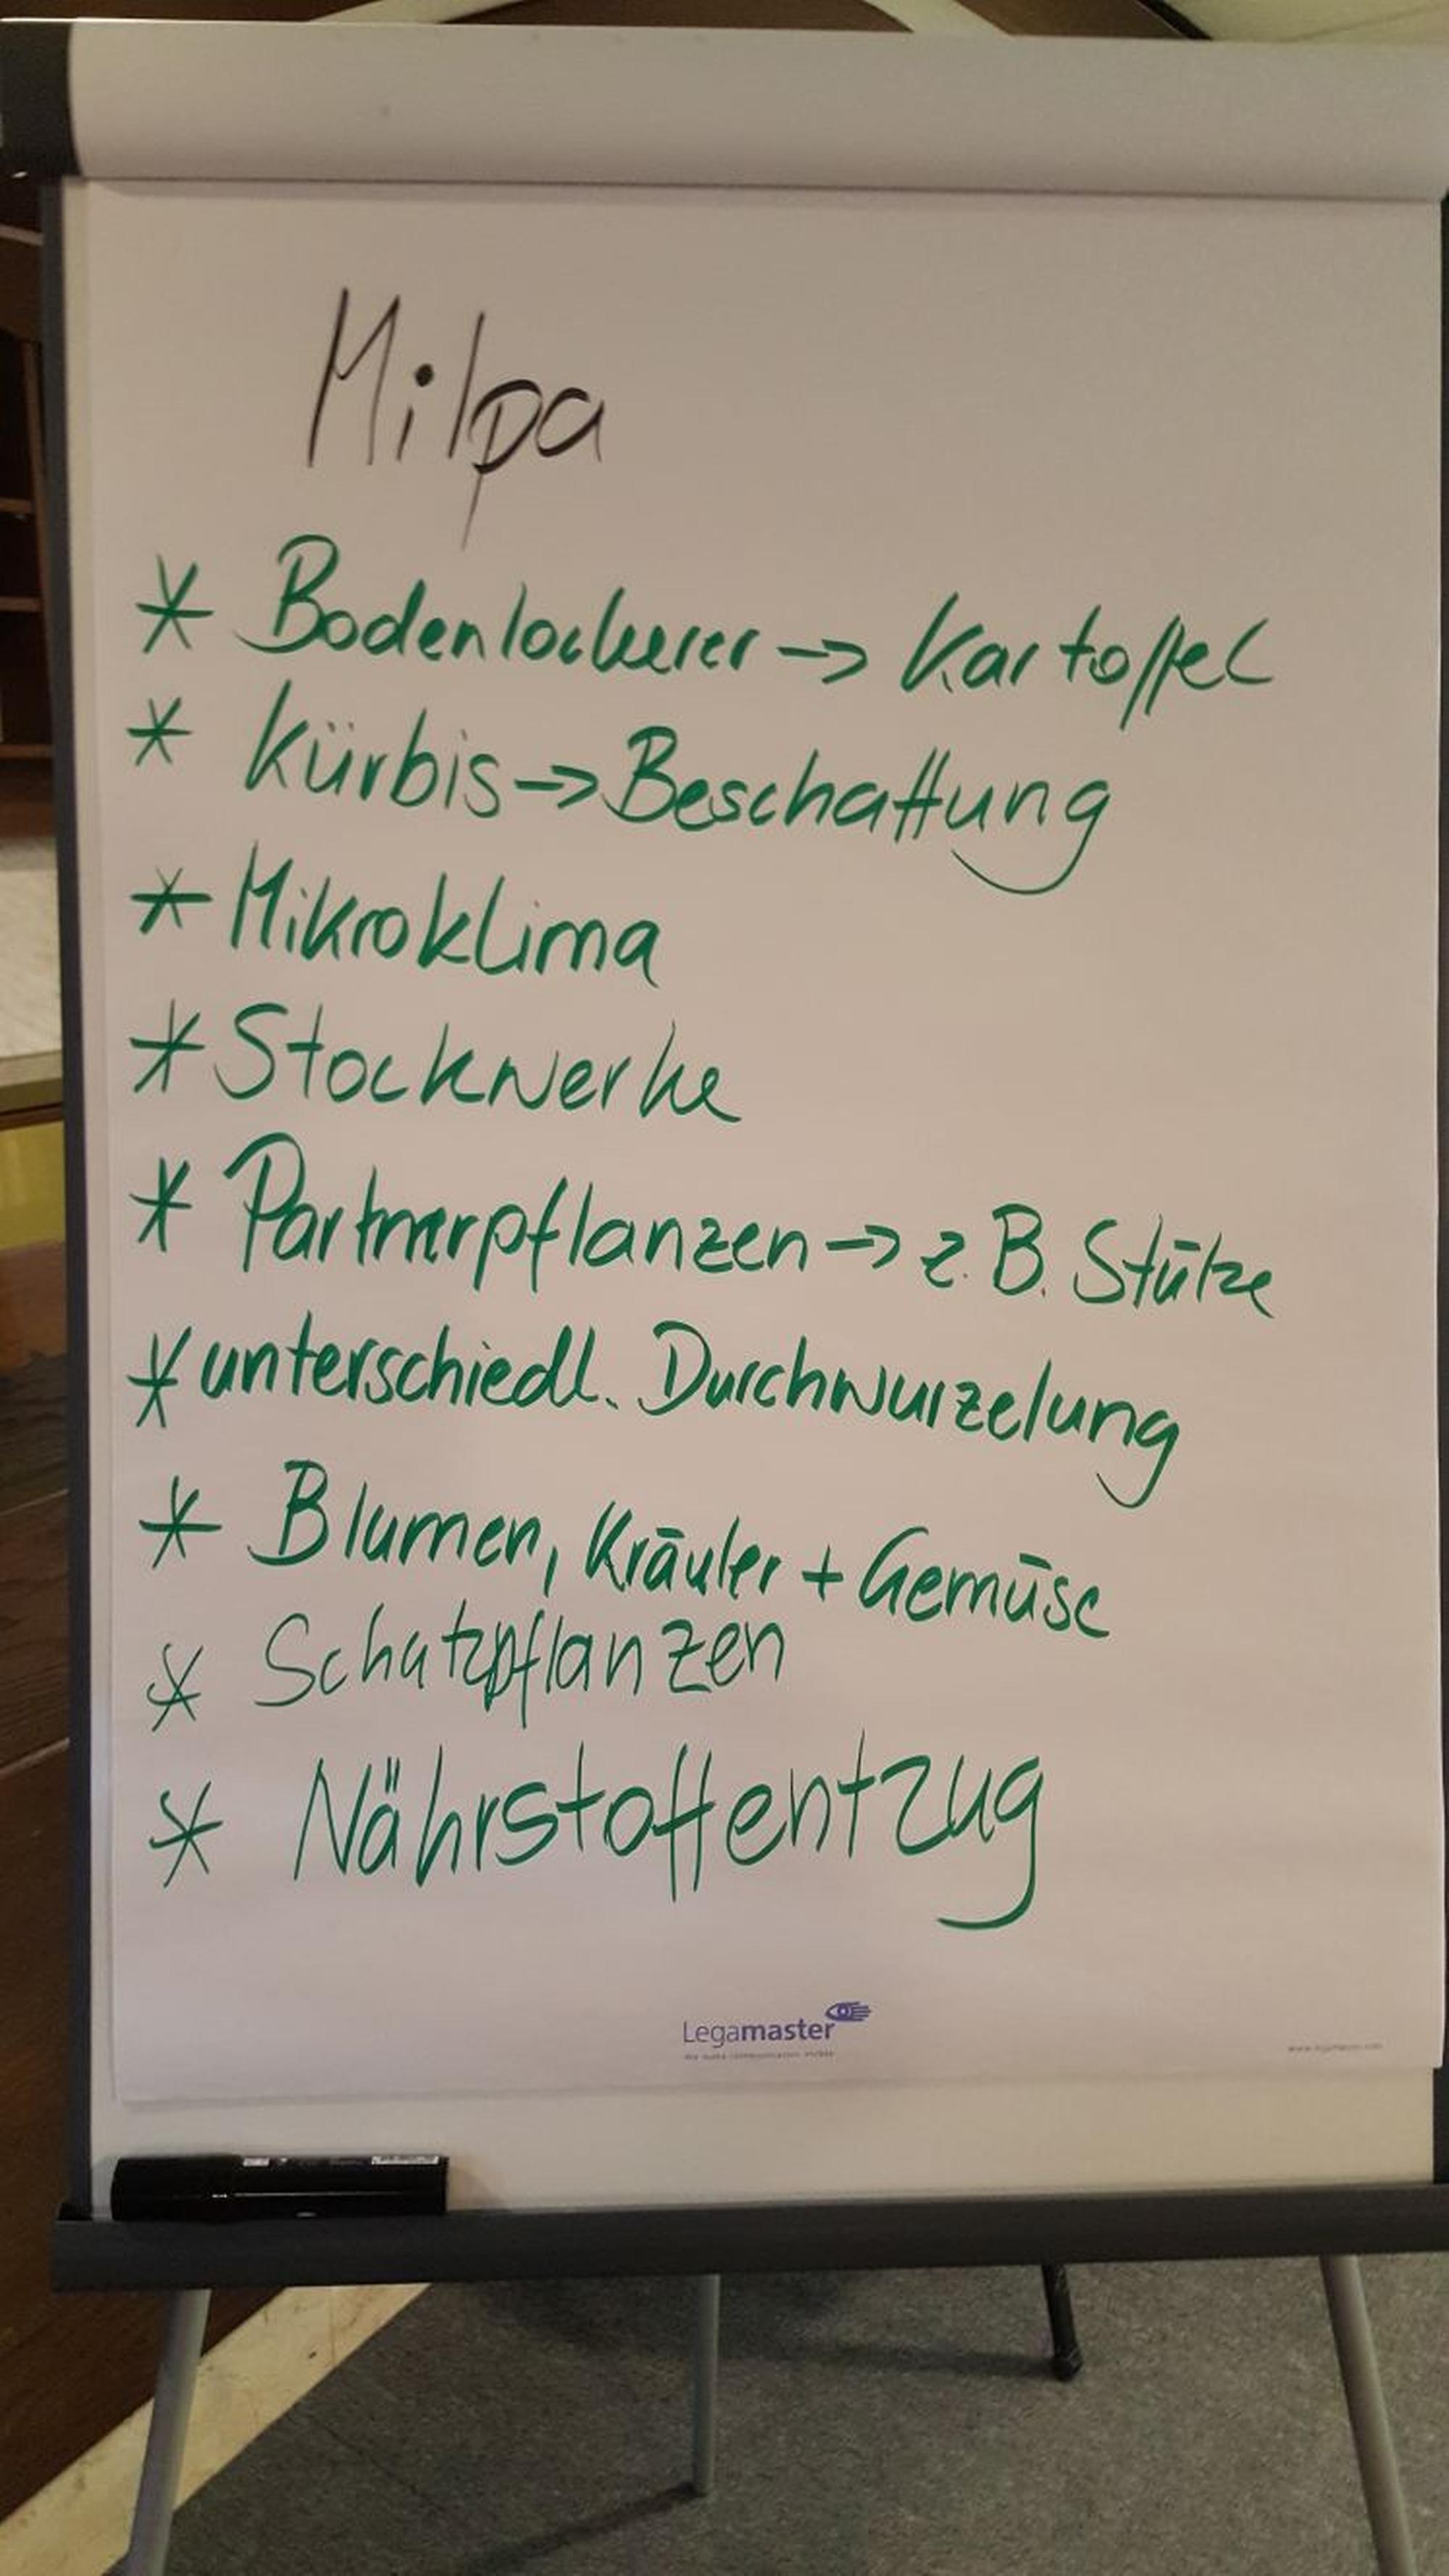 Milpa
* Bodenlockerer -> Kartoffel
* Kürbis -> Beschattung
* Mikroklima
* Stockwerke
* Partnerpflanzen -> z.B. Stütze
* unterschiedl. Durchwurzelung
* Blumen, Kräuter + Gemüse
* Schutzpflanzen
* Nährstoffentzug
Legamaster